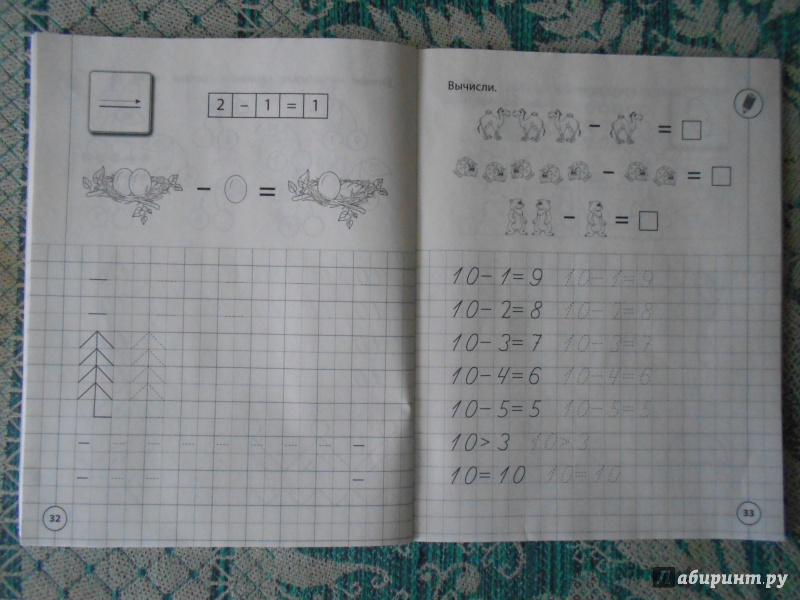 2 - 1 = 1
- =
32
Вычисли.
- =
- =
- =
10-1=9 10-1=9
10-2=8 10-2=8
10-3=7 10-3=7
10-4=6 10-4=6
10-5=5 10-5=5
10>3 10>3
10=10 10=10
33
Лабиринт.ру